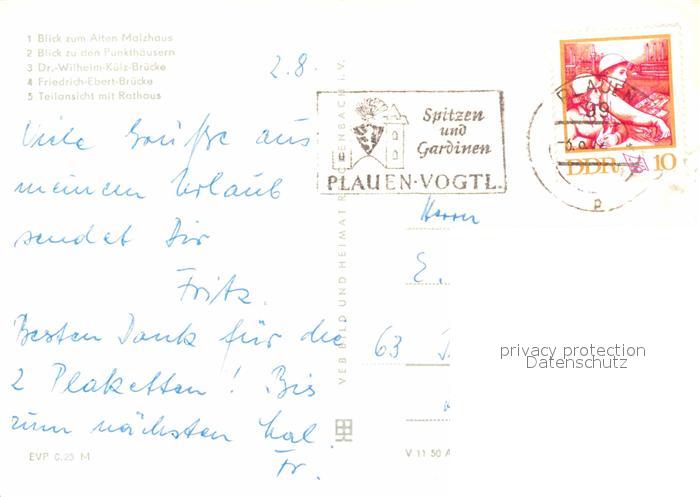 1 Blick zum Alten Malzhaus
2 Blick zu den Punkthäusern
3 Dr.-Wilhelm-Külz-Brücke
4 Friedrich-Ebert-Brücke
5 Teilansicht mit Rathaus
2.8.
Viele Grüße aus
meinem Urlaub
sendet Dir
Fritz.
Besten Dank für die
2 Plaketten! Bis
zum nächsten Mal.
Fr.
EVP 0,23 M
VEB BILD UND HEIMAT REICHENBACH I.V.
V 11 50 A
Spitzen
und
Gardinen
PLAUEN·VOGTL.
PLAUEN
99
p
DDR 10
Herrn
E.
63
privacy protection
Datenschutz